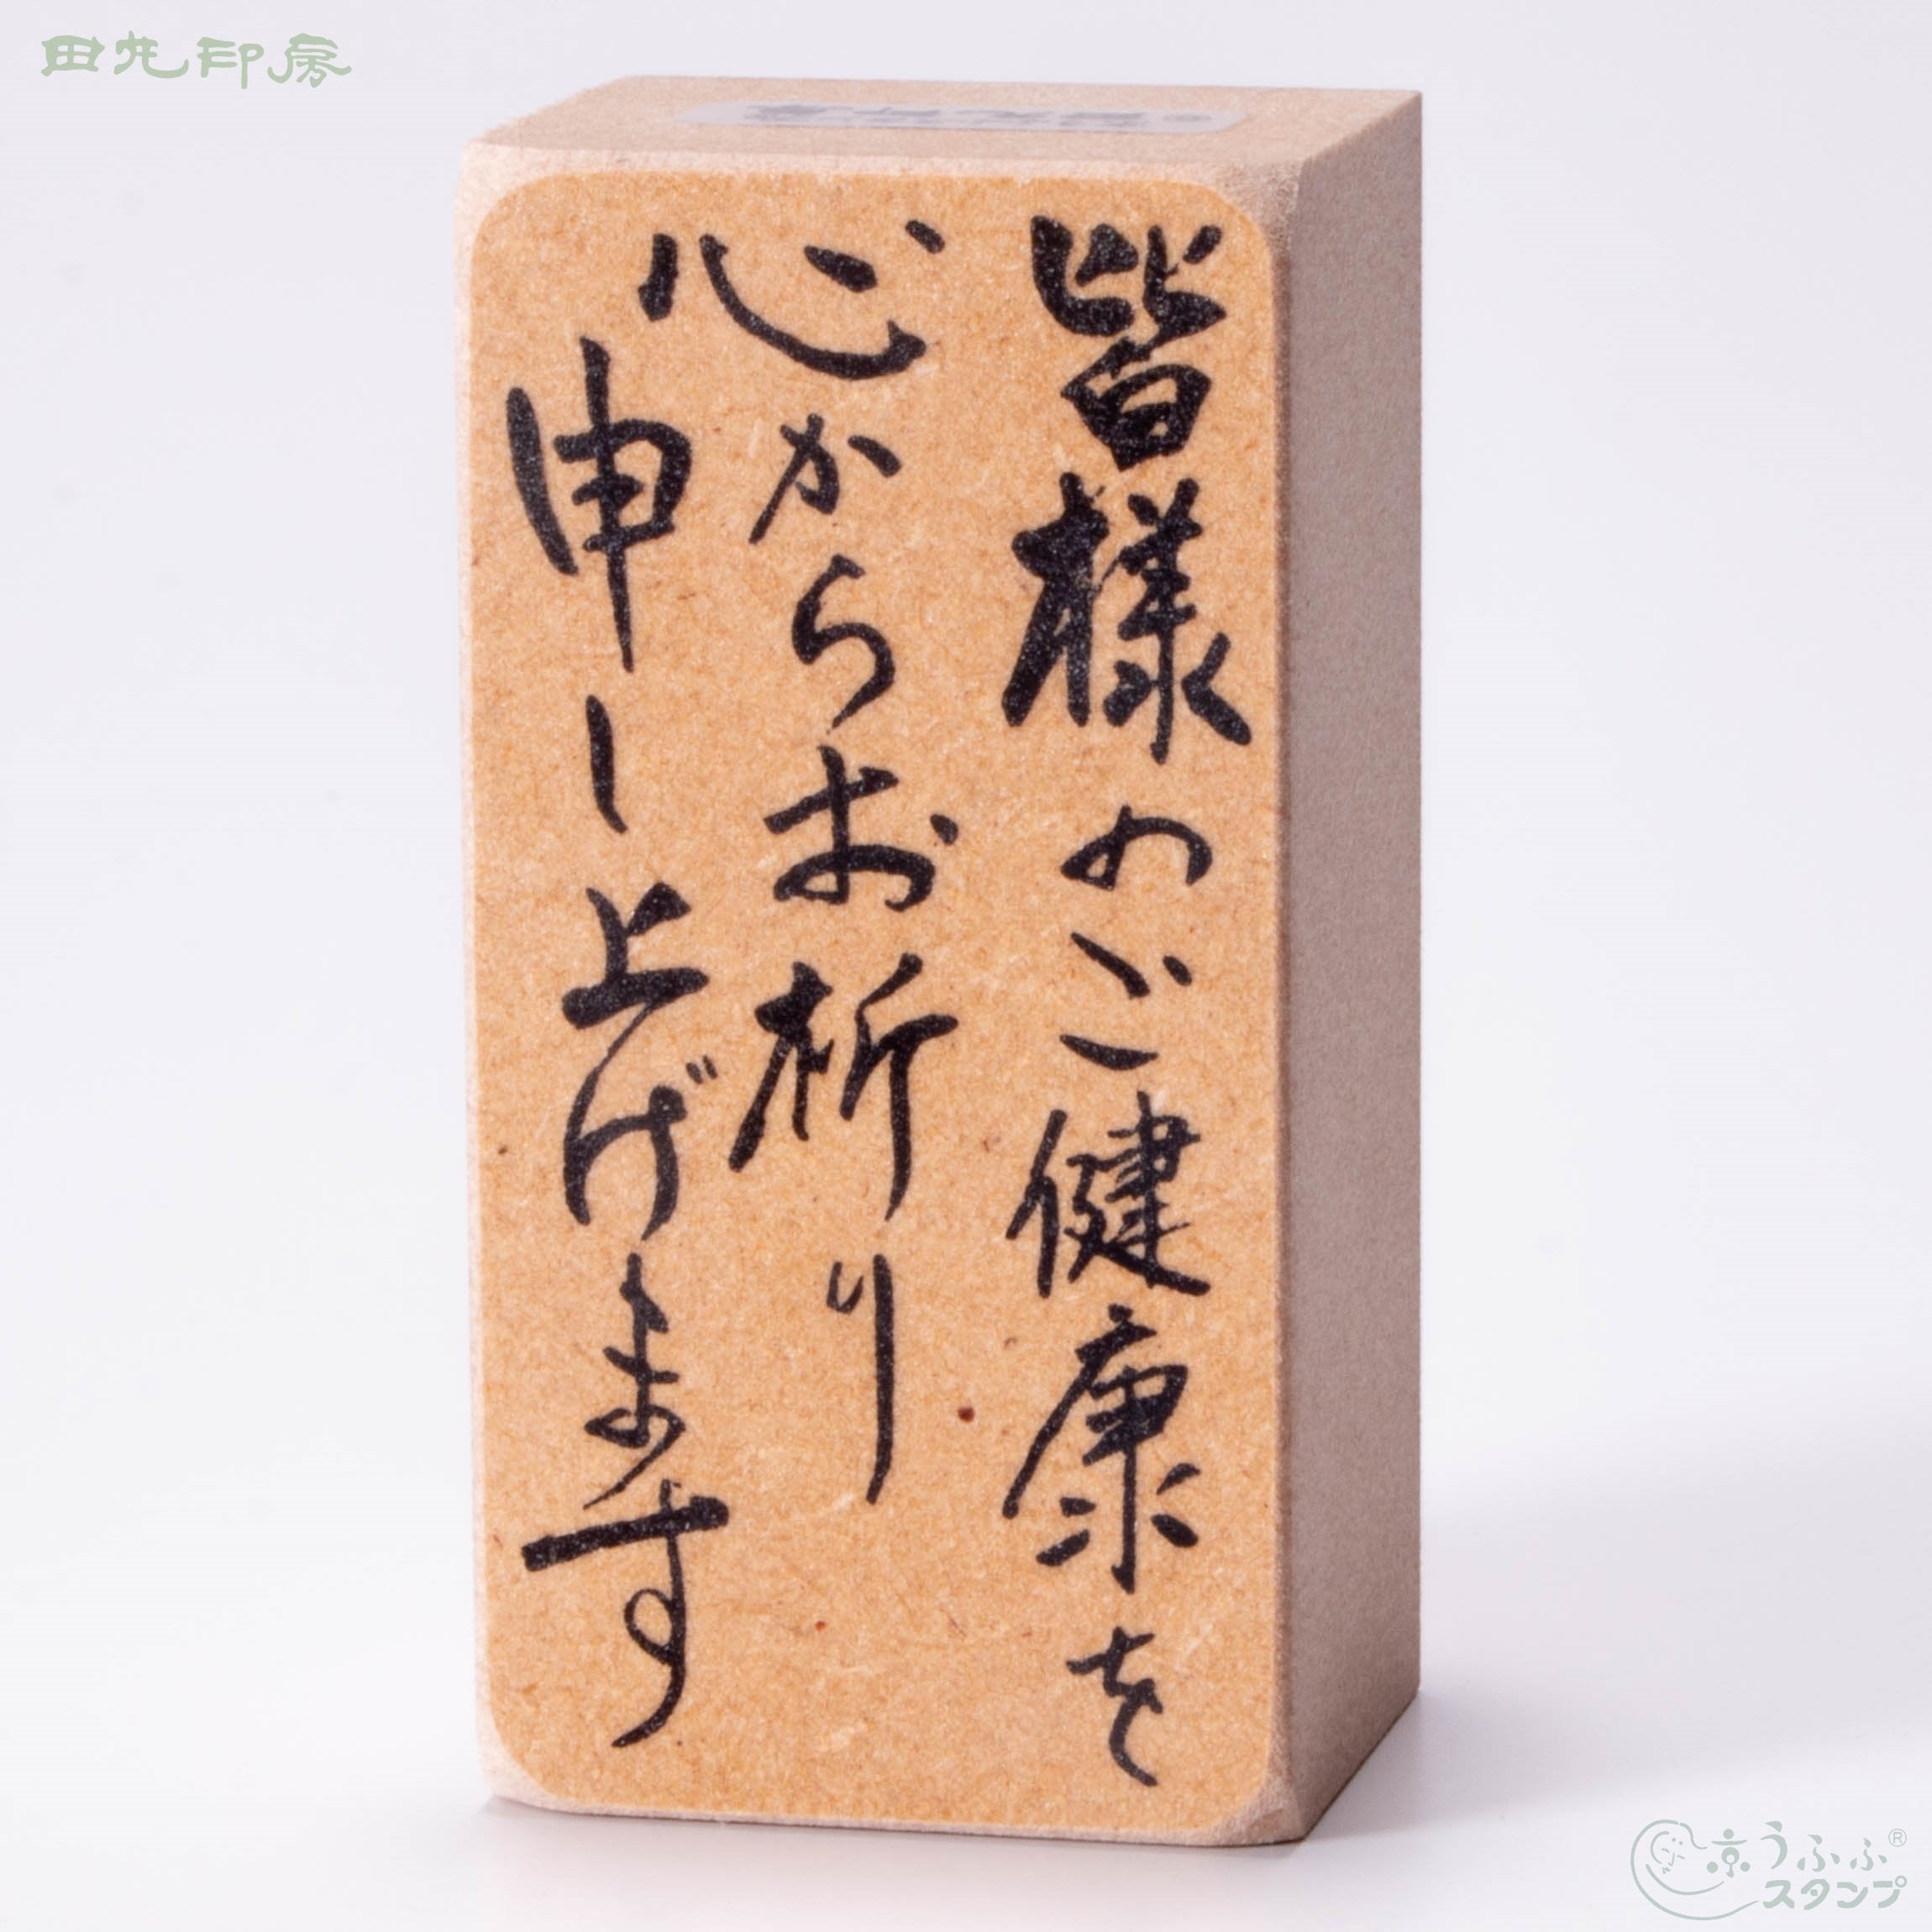 田丸印房
皆様のご健康を
心からお祈り
申し上げます
京うふふ®
スタンプ